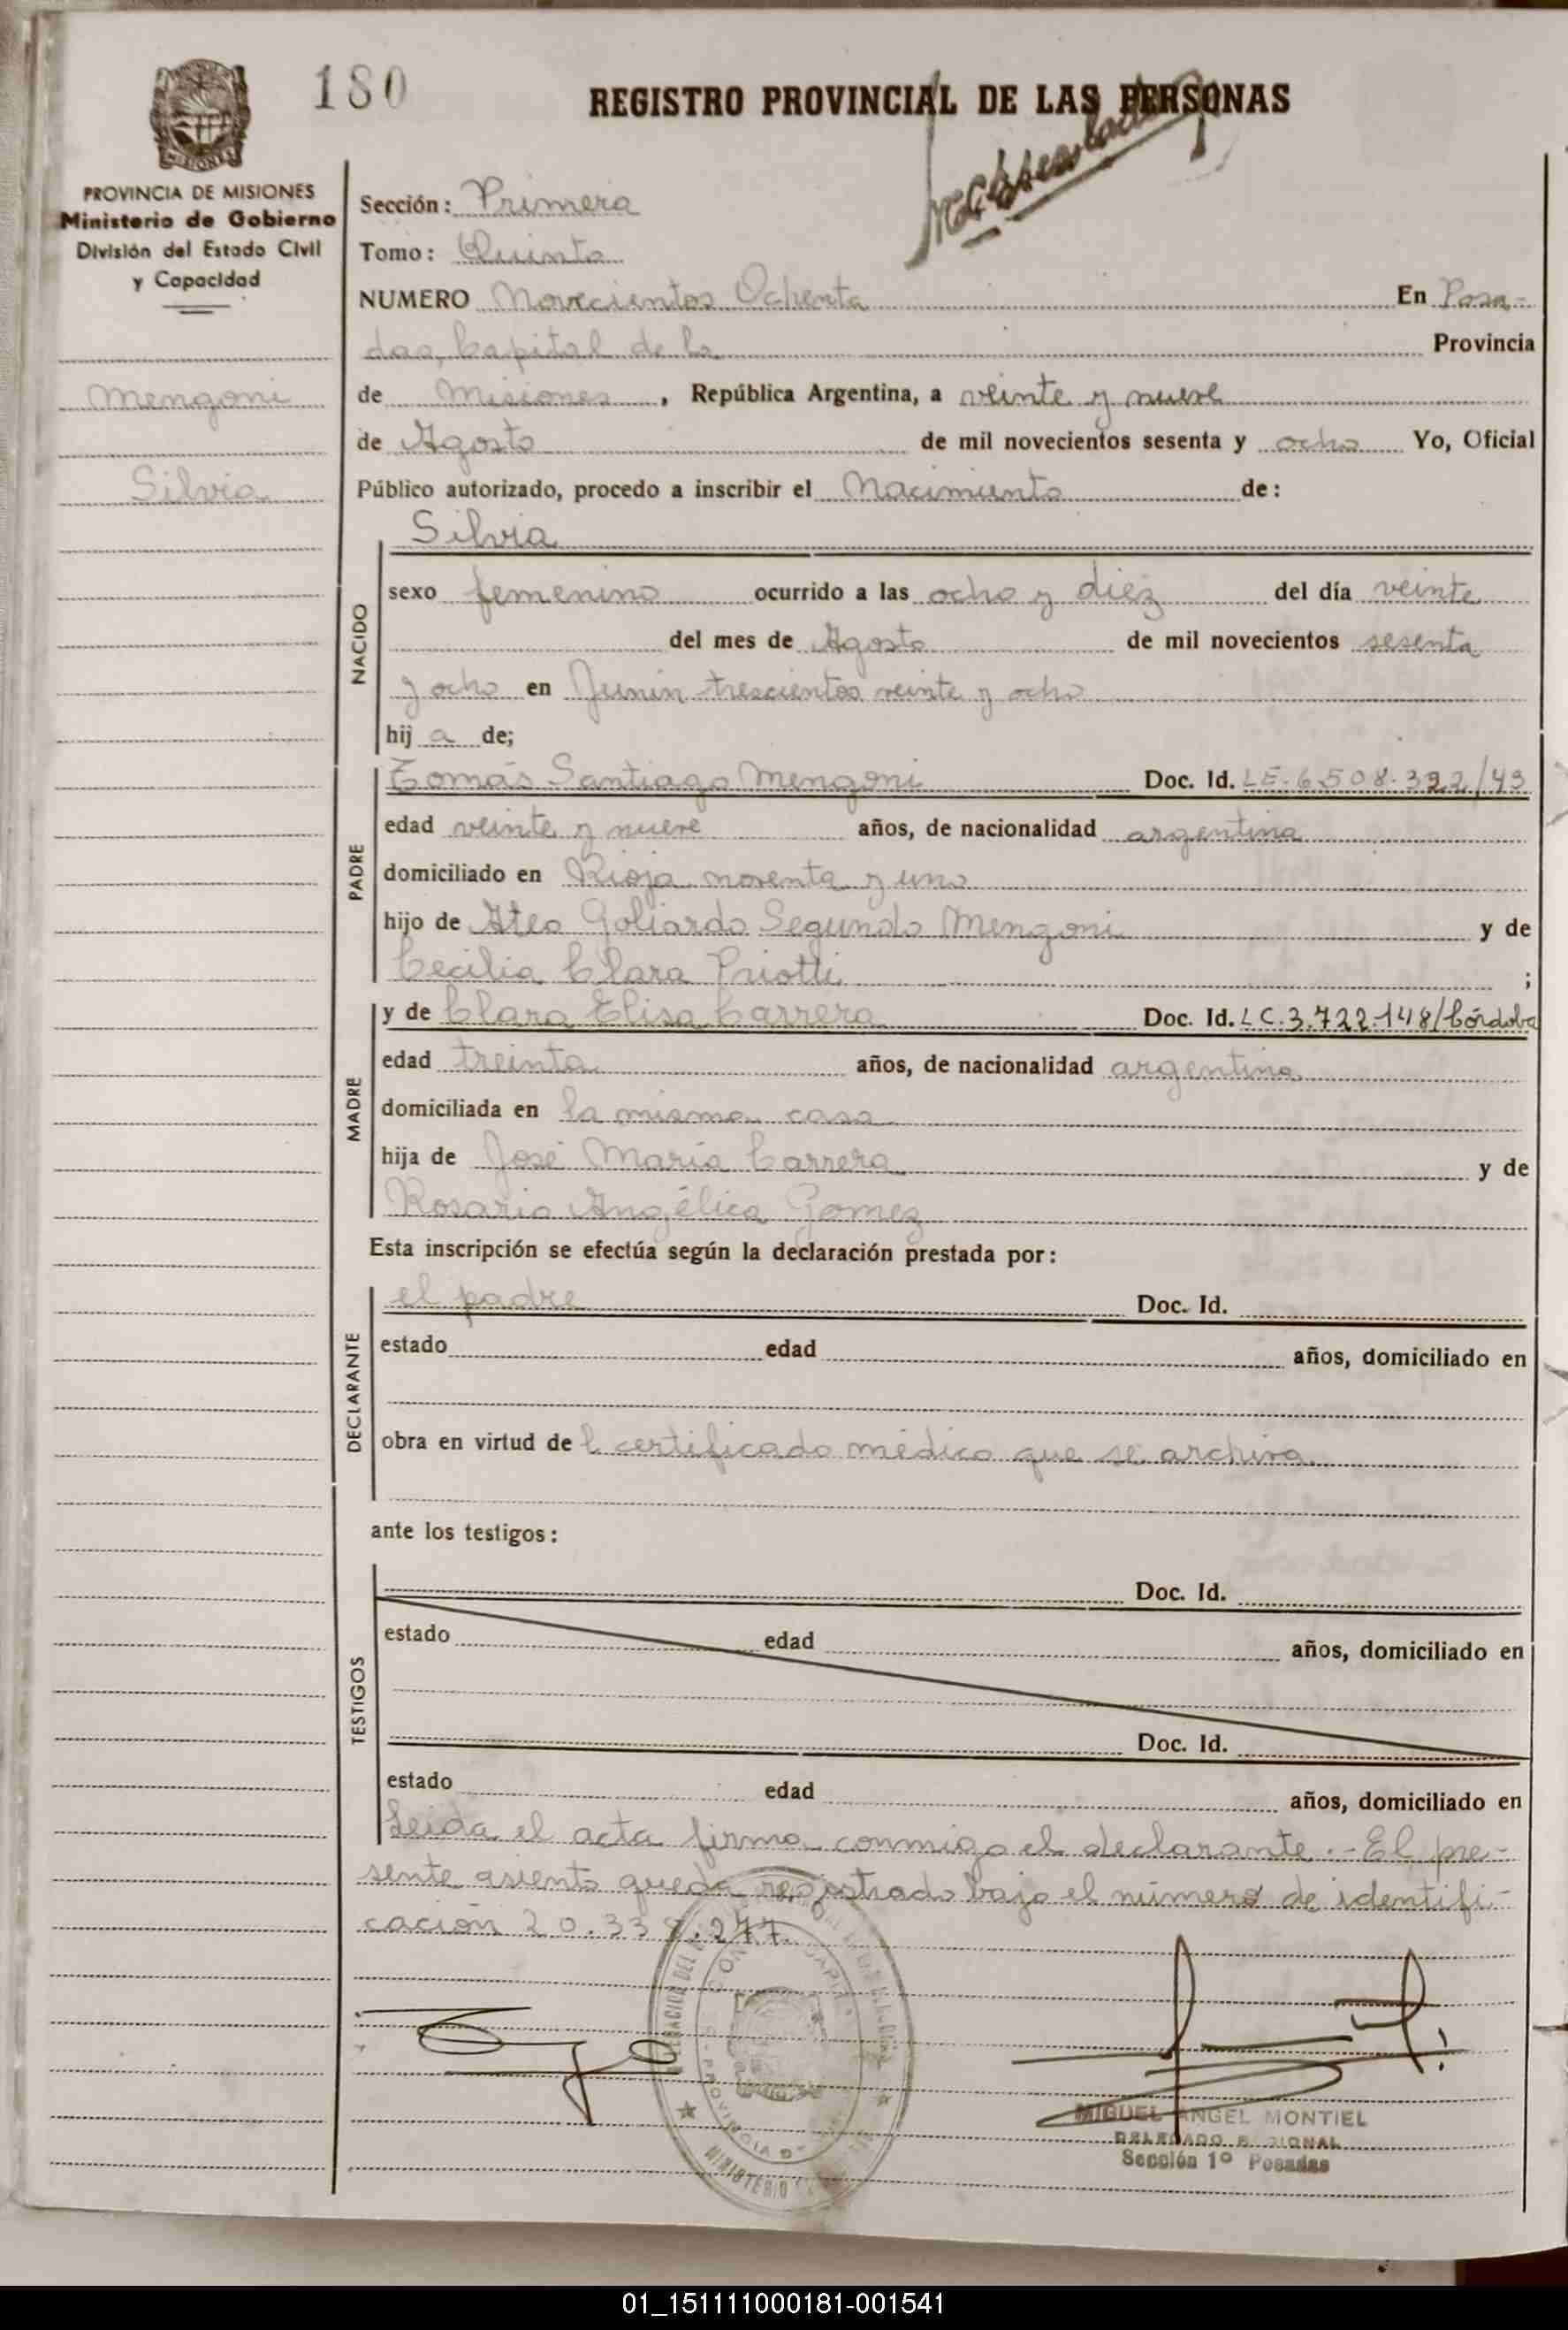 180
REGISTRO PROVINCIAL DE LAS PERSONAS
MISIONES
PROVINCIA DE MISIONES
Ministerio de Gobierno
División del Estado Civil
y Capacidad
Mengoni
Silvia
Sección: Primera
Tomo: Quinto
NUMERO Novecientos Ochenta En Posa-
das, Capital de la Provincia
de Misiones, República Argentina, a veinte y nueve
de Agosto de mil novecientos sesenta y ocho Yo, Oficial
Público autorizado, procedo a inscribir el Nacimiento de:
Silvia
NACIDO
sexo femenino ocurrido a las ocho y diez del día veinte
del mes de Agosto de mil novecientos sesenta
y ocho en Junin trescientos veinte y ocho
hij a de;
PADRE
Tomás Santiago Mengoni Doc. Id. LE. 6.508.322/43
edad veinte y nueve años, de nacionalidad argentina
domiciliado en Rioja noventa y uno
hijo de Ateo Goliardo Segundo Mengoni y de
Cecilia Clara Priotti ;
MADRE
y de Clara Elisa Carrera Doc. Id. LC. 3.722.148/Córdoba
edad treinta años, de nacionalidad argentina
domiciliada en la misma casa
hija de José María Carrera y de
Rosario Angélica Gomez
Esta inscripción se efectúa según la declaración prestada por:
DECLARANTE
el padre Doc. Id.
estado edad años, domiciliado en
obra en virtud de l certificado médico que se archiva
ante los testigos:
TESTIGOS
Doc. Id.
estado edad años, domiciliado en
Doc. Id.
estado edad años, domiciliado en
Leida el acta firma conmigo el declarante.- El pre-
sente asiento queda registrado bajo el número de identifi-
cación 20.338.277.
MIGUEL ANGEL MONTIEL
DELEGADO REGIONAL
Sección 1º Posadas
01_151111000181-001541